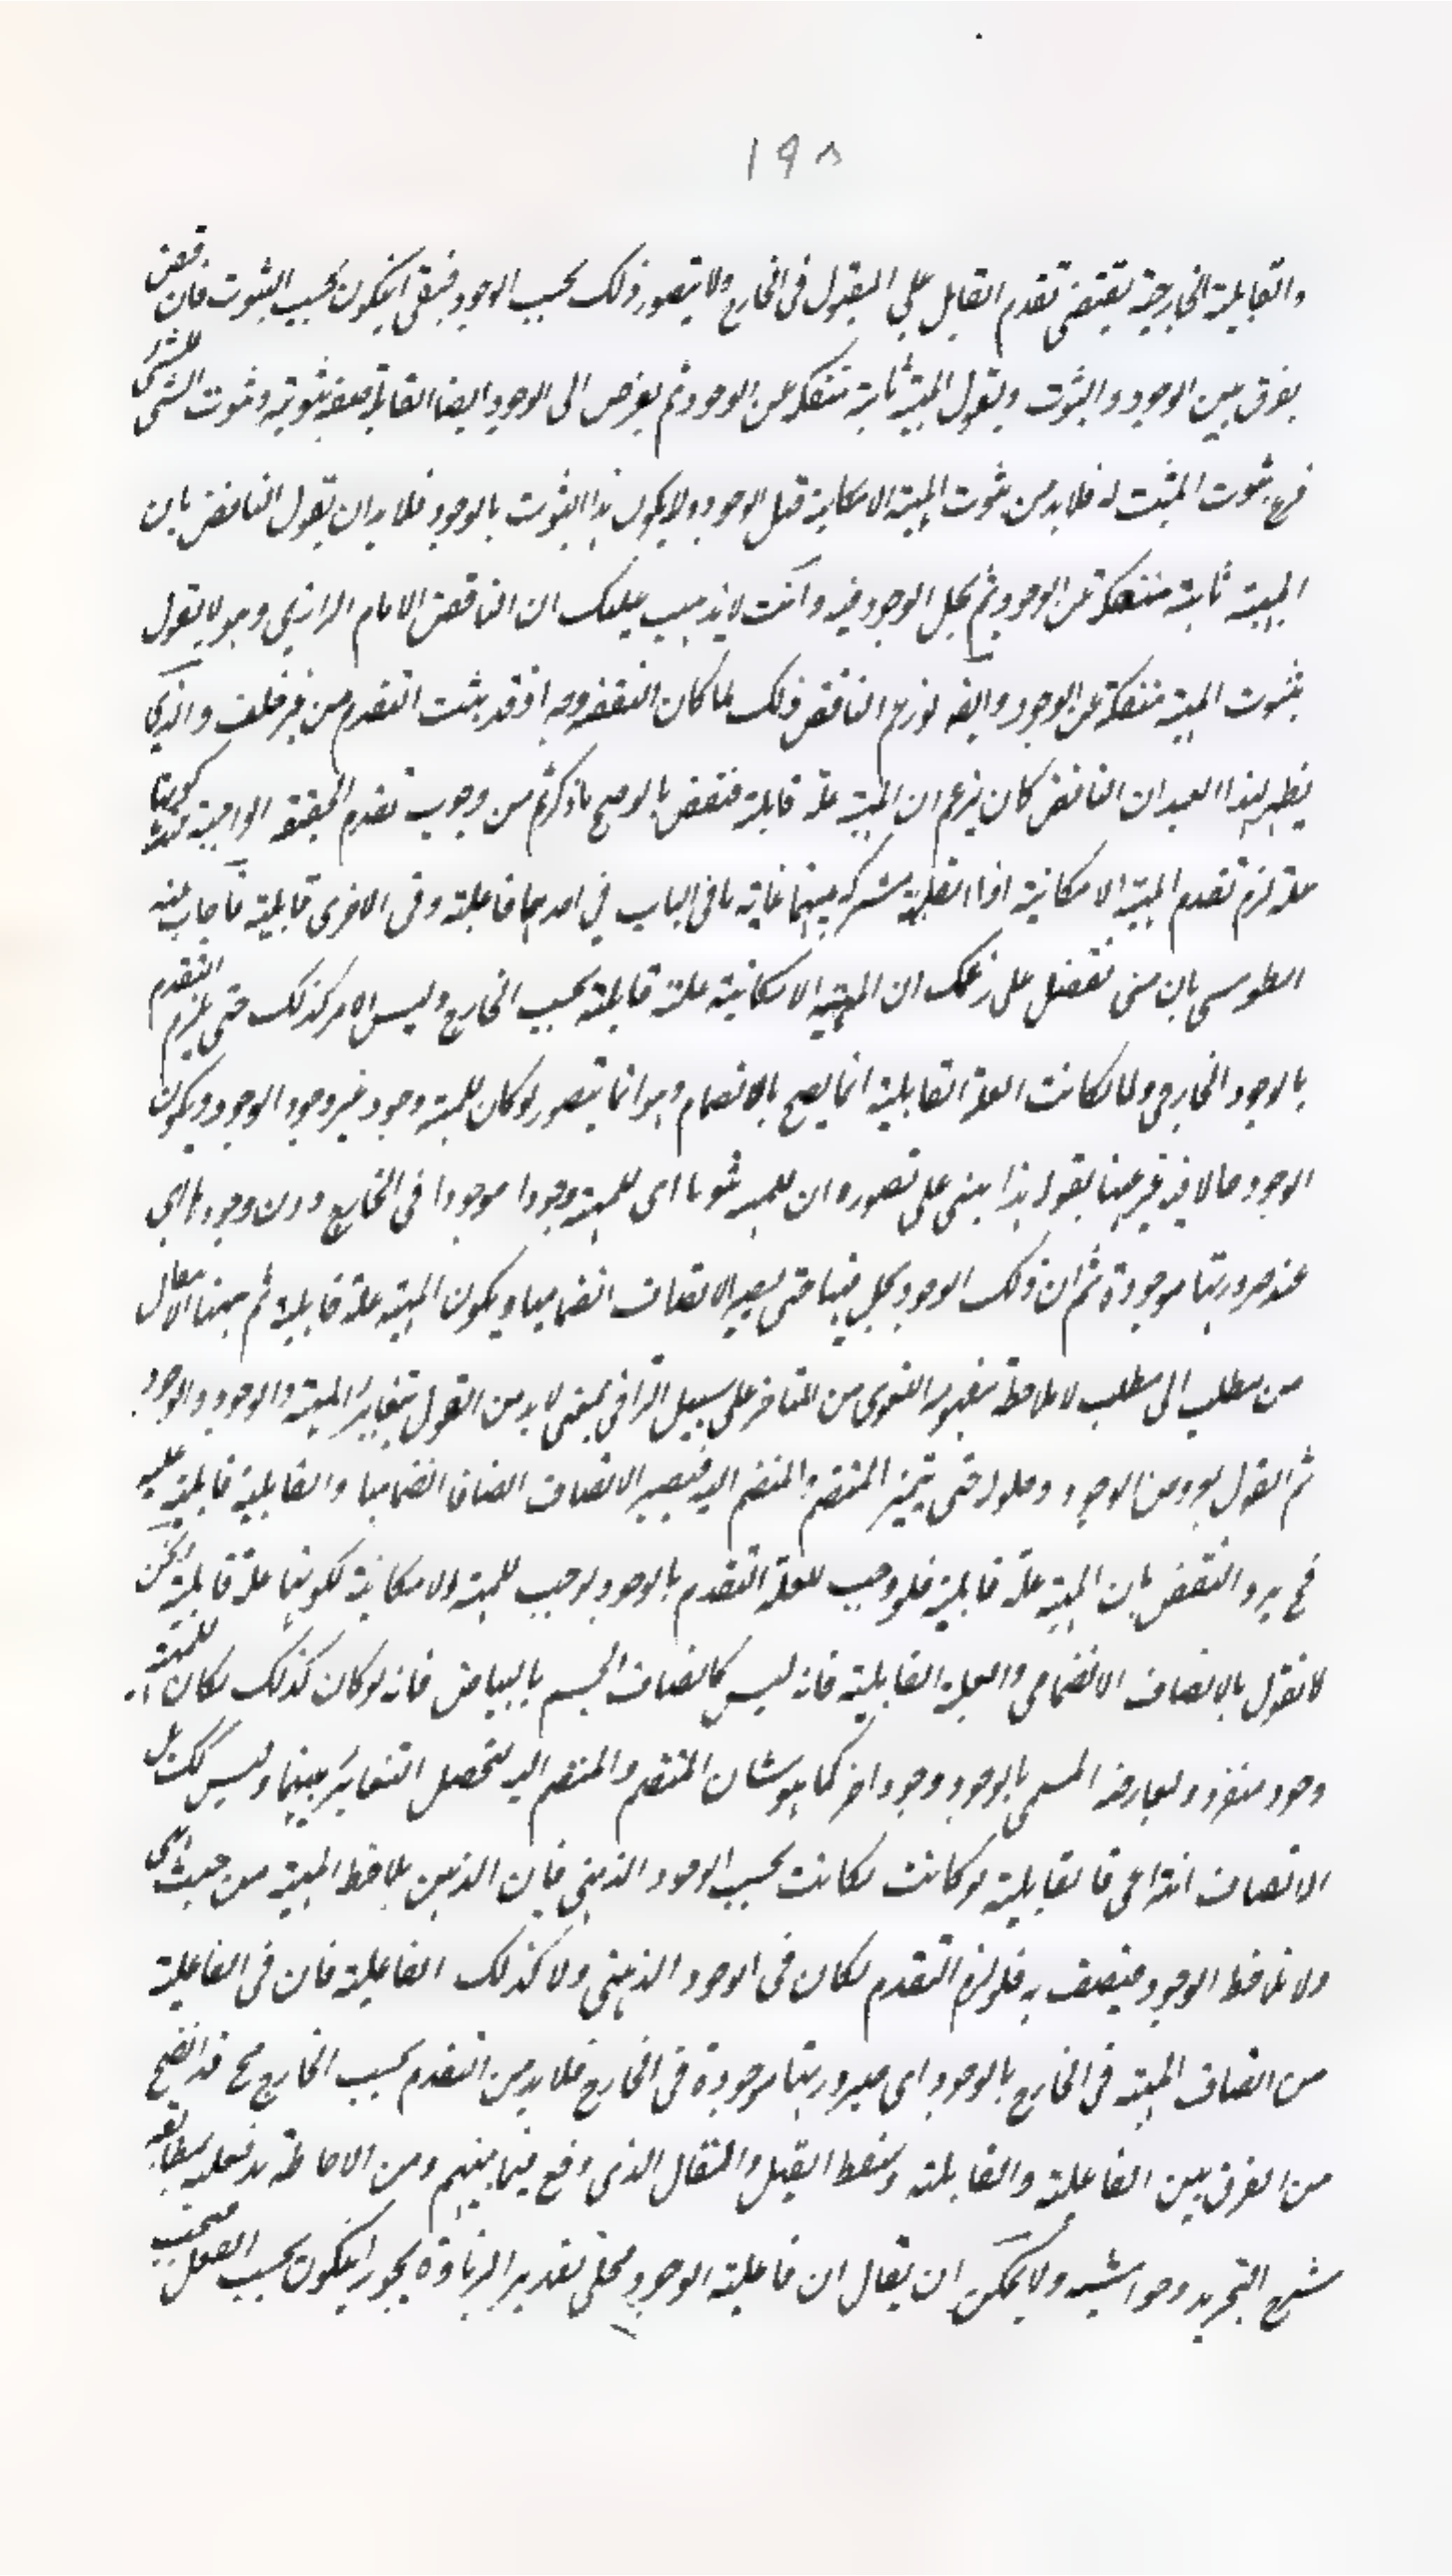 ١٩٨
والقابلية الخارجية يقتضى تقدم القابل على المقبول فى الخارج ولا يتصور ذلك بحسب الوجود فبقى ان يكون بحسب الثبوت فان
يفرق بين الوجود والثبوت ويقول المهية ثابتة منفكة عن الوجود ثم يعرض لها الوجود ايضا القابلية صفة ثبوتية وثبوت الشى للشى
فرع ثبوت المثبت له فلا بد من ثبوت المهية الامكانية قبل الوجود ولا يكون هذا الثبوت بالوجود فلا بد ان يقول الناقض بان
المهية ثابتة منفكة عن الوجود ثم يحل الوجود فيه وانت لا يذهب عليك ان الناقض الامام الرازى وهو لا يقول
بثبوت المهية منفكة عن الوجود وايضا لو زعم الناقض ذلك لما كان لنقضه وجه اذ قد يثبت التقدم من غير خلف والذى
يظهر لهذا العبد ان الناقض كان يزعم ان المهية علة قابلية فنقض بالوصح ما ذكرتم من وجوب تقدم الحقيقة الواجبية لكونها
علة لزم تقدم المهية الامكانية اذا العلية مشتركة بينهما غاية ما فى الباب فى احدهما فاعلية وفى الاخرى قابلية فاجاب عنه
الطوسى بان منى نقضك على زعمك ان المهية الامكانية علة قابلية بحسب الخارج وليس الامر كذلك حتى يلزم التقدم
بالوجود الخارجى ولما كانت العلة القابلية انما يصح بالانضمام وهو انما يتصور لو كان للمهية وجود غير وجود الوجود ويكون
الوجود حالا فيه فرعها بقوله هذا مبنى على تصوره ان للمهية ثبوتا اى للمهية وجودا موجودا فى الخارج دون وجودها اى
عند صيرورتها موجودة ثم ان ذلك الوجود يحل فيها حتى يصير الاتصاف انضماميا ويكون المهية علة قابلية ثم ههنا الانتقال
من مطلب الى مطلب لا ملاحظة مفهومه اللغوى من المتاخر على سبيل التراخى بمعنى لا بد من القول بتغاير المهية والوجود
ثم القول بعروض الوجود وحلوله حتى يتميز المنضم والمنضم اليه فيصير الاتصاف اتصافا انضماميا والقابلية قابلية
فح يرد النقض بان المهية علة قابلية فلو وجب للعلة التقدم بالوجود لوجب للمهية الامكانية لكونها علة قابلية لكن
لا نقول بالاتصاف الانضمامى والعلية القابلية فانه ليس كاتصاف الجسم بالبياض فانه لو كان كذلك لكان للمهية
وجود منفرد ولعارضه المسمى بالوجود وجود اخر كما هو شان المنضم والمنضم اليه لتحصل التغاير بينهما وليس كك بل
الاتصاف انتزاعى فالقابلية لو كانت لكانت بحسب الوجود الذهنى فان الذهن يلاحظ المهية من حيث هى
ولا يلاحظ الوجود فيتصف به فلو لزم التقدم لكان فى الوجود الذهنى ولا كذلك الفاعلية فان فى الفاعلية
من اتصاف المهية فى الخارج بالوجود اى صيرورتها موجودة فى الخارج فلا بد من التقدم بحسب الخارج فح قد اتضح
من الفرق بين الفاعلية والقابلية وسقط القيل والقال الذى وقع فيما بينهم ومن الاحاطة به فعليه بمطالعة
شرح التجريد وحواشيه ولا يمكن ان يقال ان فاعلية الوجود على تقدير الزيادة يجوز ان يكون بحسب العقل